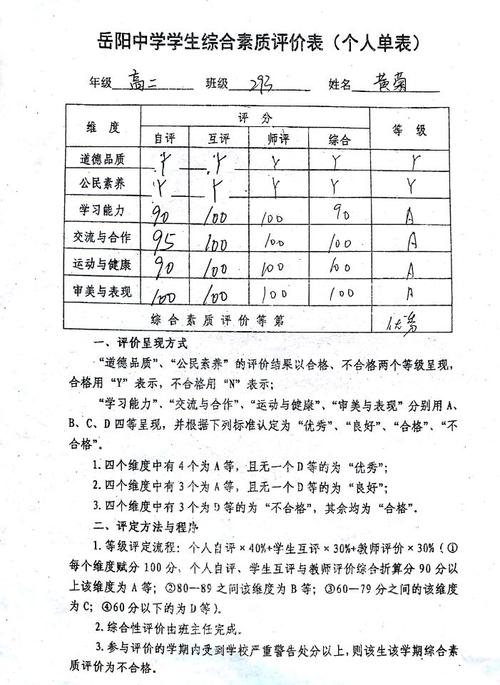 岳阳中学学生综合素质评价表（个人单表）
年级 高二 班级 293 姓名 黄菊
维度 评分 等级
自评 互评 师评 综合
道德品质 Y Y Y Y Y
公民素养 Y Y Y Y Y
学习能力 90 100 100 90 A
交流与合作 95 100 100 100 A
运动与健康 90 100 100 100 A
审美与表现 100 100 100 100 A
综合素质评价等第 优秀
一、评价呈现方式
“道德品质”、“公民素养”的评价结果以合格、不合格两个等级呈现，
合格用“Y”表示，不合格用“N”表示；
“学习能力”、“交流与合作”、“运动与健康”、“审美与表现”分别用A、
B、C、D四等呈现，并根据下列标准认定为“优秀”、“良好”、“合格”、“不
合格”。
1.四个维度中有4个为A等，且无一个D等的为“优秀”；
2.四个维度中有3个为A等，且无一个D等的为“良好”；
3.四个维度中有3个为D等的为“不合格”，其余均为“合格”。
二、评定方法与程序
1.等级评定流程：个人自评×40%+学生互评×30%+教师评价×30%（①
每个维度赋分100分，个人自评、学生互评与教师评价综合折算分90分以
上该维度为A等；②80—89之间该维度为B等；③60—79分之间的该维度
为C；④60分以下的为D等）。
2.综合性评价由班主任完成。
3.参与评价的学期内受到学校严重警告处分以上，则该生该学期综合素
质评价为不合格。